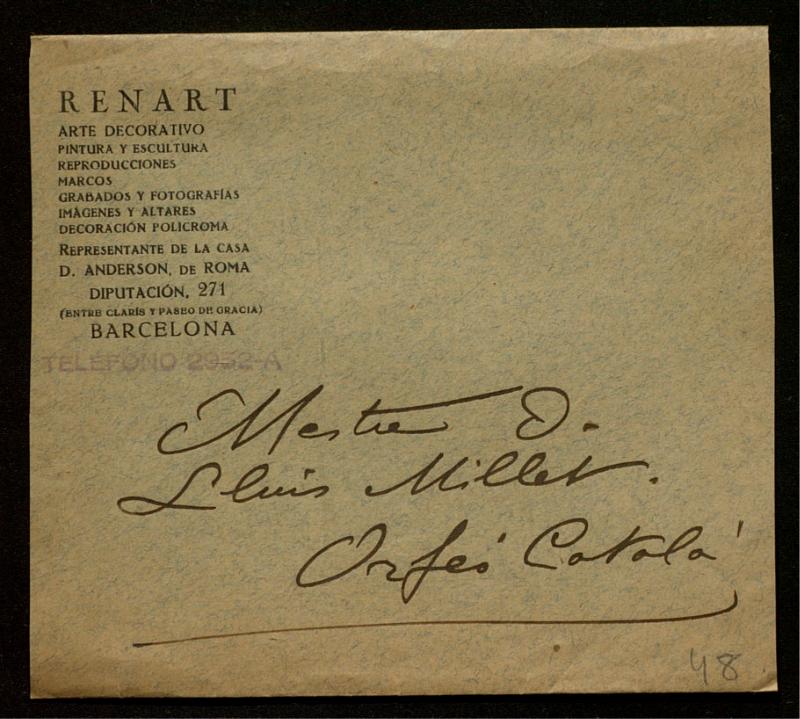 RENART
ARTE DECORATIVO
PINTURA Y ESCULTURA
REPRODUCCIONES
MARCOS
GRABADOS Y FOTOGRAFÍAS
IMÁGENES Y ALTARES
DECORACIÓN POLICROMA
REPRESENTANTE DE LA CASA
D. ANDERSON, DE ROMA
DIPUTACIÓN, 271
(ENTRE CLARÍS Y PASEO DE GRACIA)
BARCELONA
TELÉFONO 2932-A
Mestre D.
Lluis Millet.
Orfeó Catalá
48